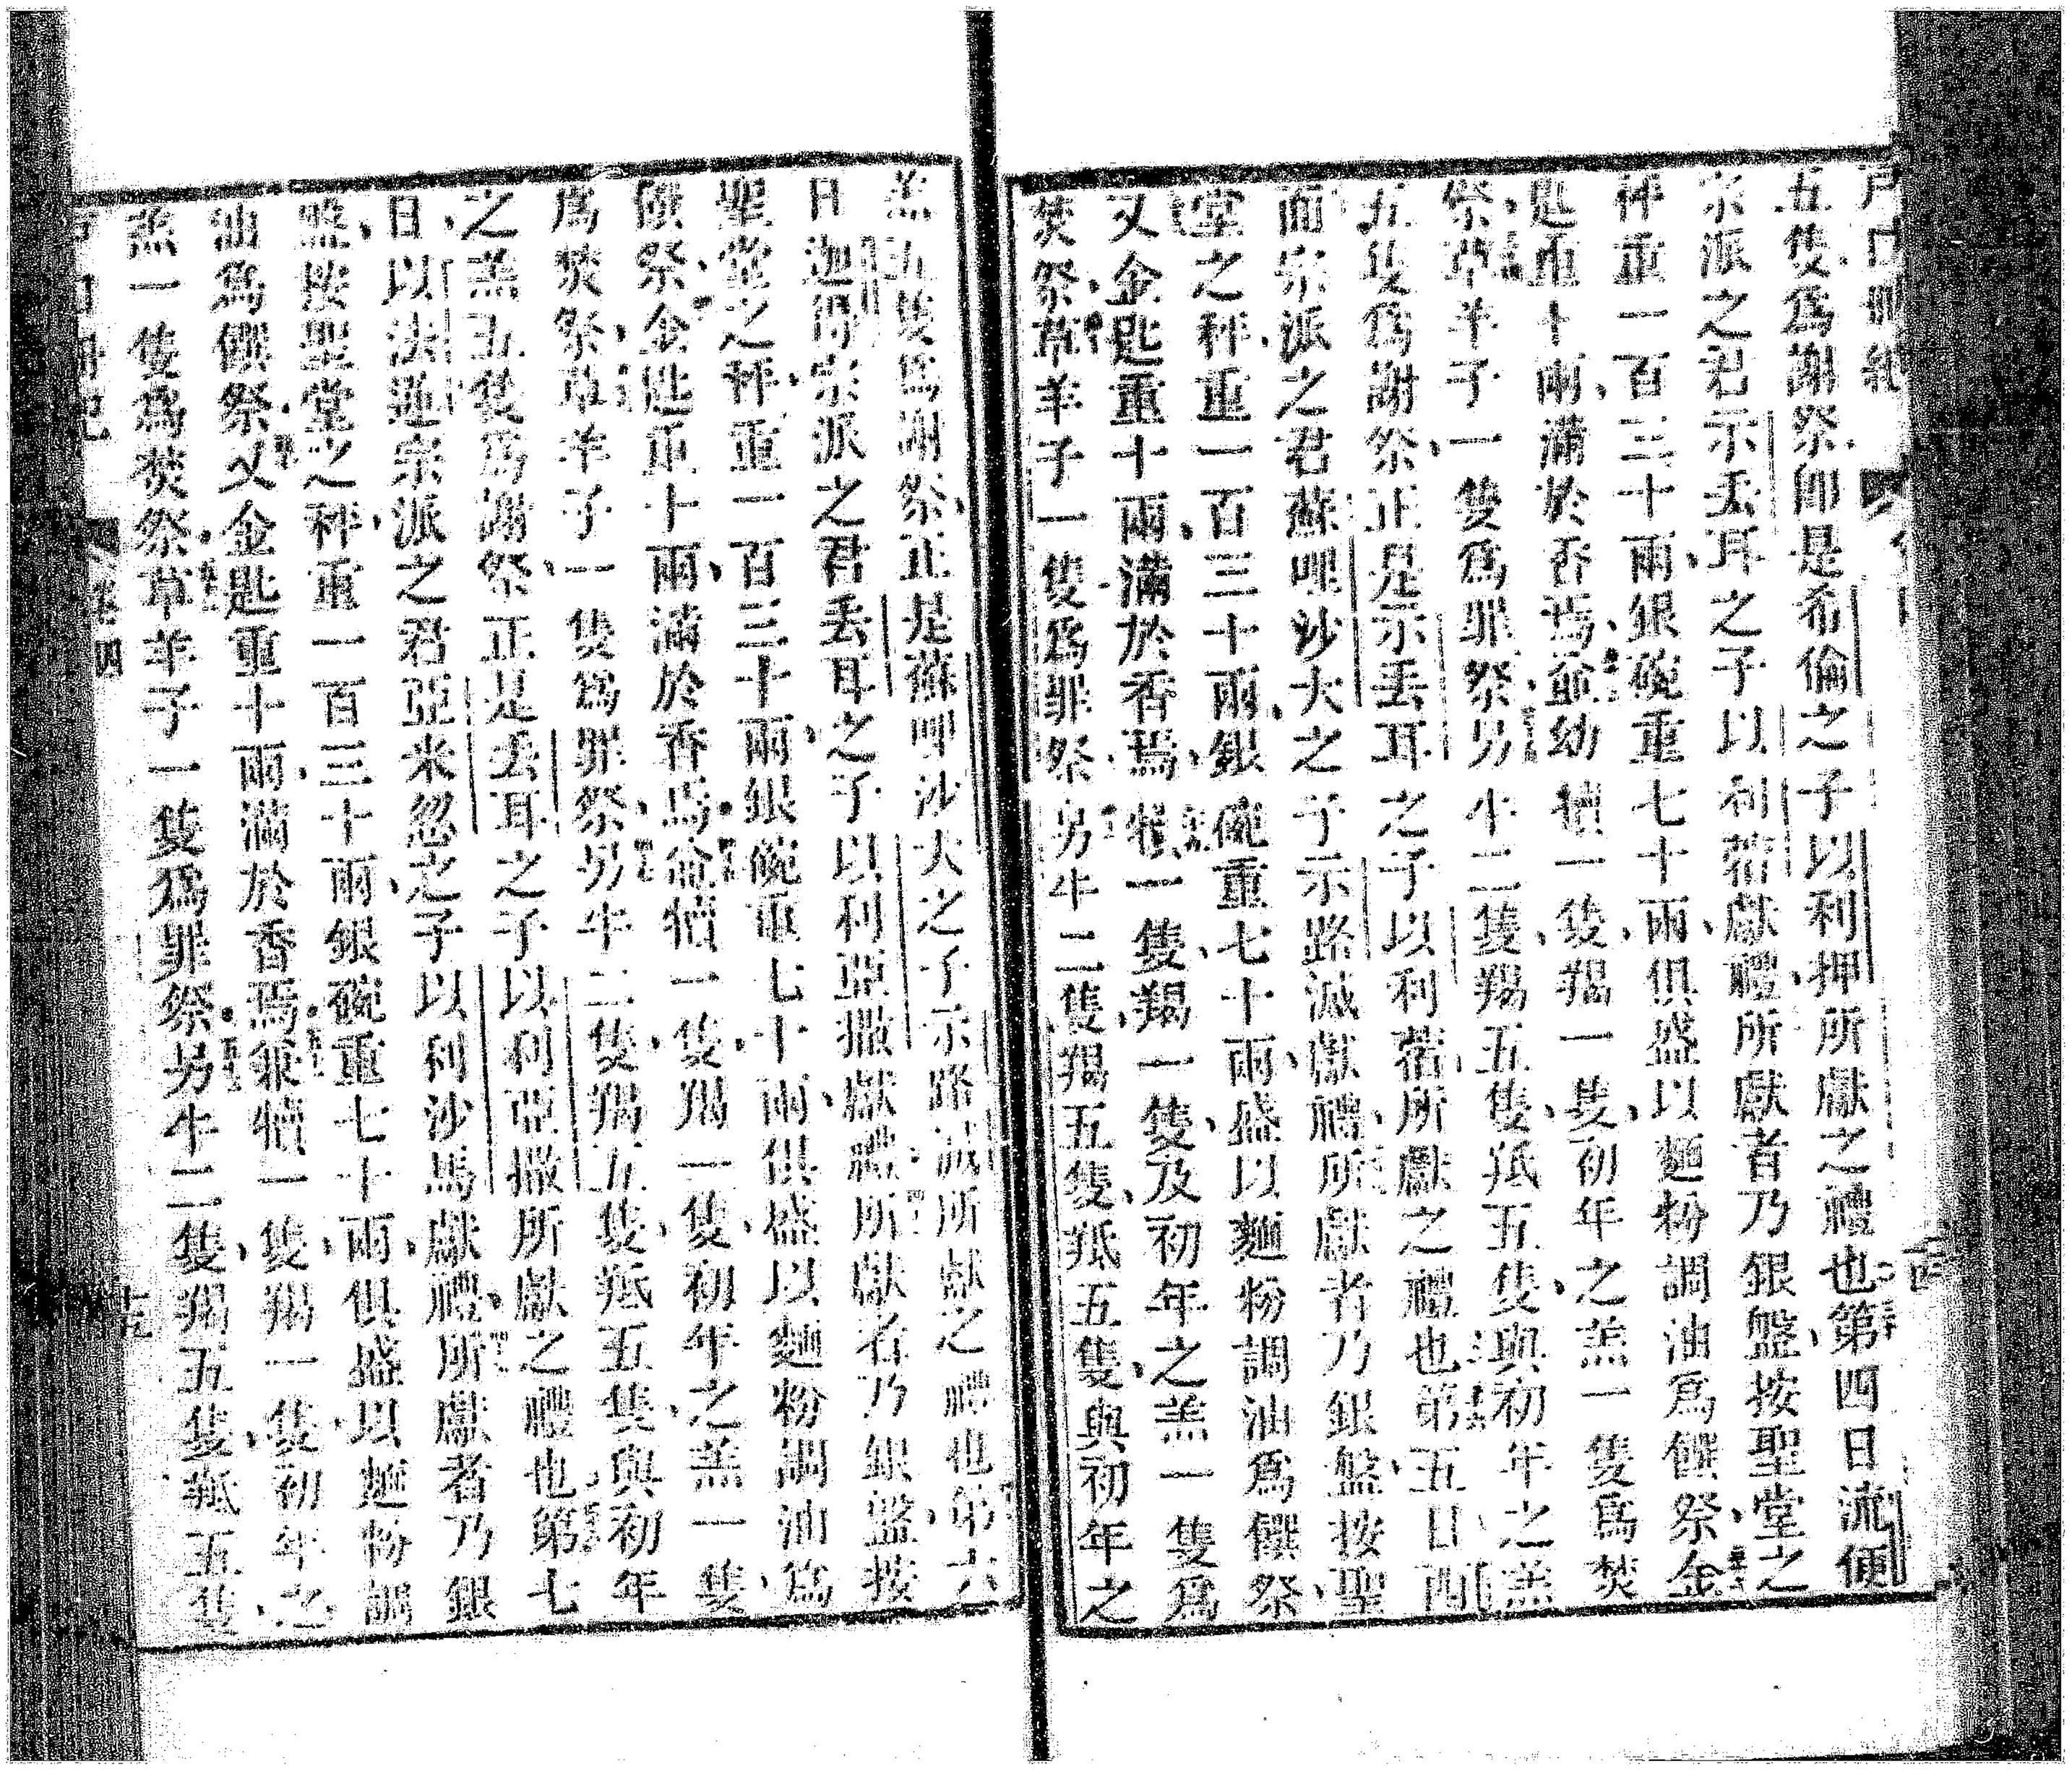 戶口冊紀
五隻爲謝祭即是希倫之子以利押所獻之禮也第四日流便
宗派之君示丢耳之子以利蓿獻禮所獻者乃銀盤按聖堂之
秤重一百三十兩銀碗重七十兩俱盛以麵粉調油爲饌祭金
匙重十兩滿於香焉並幼犢一隻羯一隻初年之羔一隻爲焚
祭草羊子一隻爲罪祭另牛二隻羯五隻羝五隻與初年之羔
五隻爲謝祭正是示丢耳之子以利蓿所獻之禮也第五日西
面宗派之君蘇哩沙大之子示路滅獻禮所獻者乃銀盤按聖
堂之秤重一百三十兩銀碗重七十兩盛以麵粉調油爲饌祭
又金匙重十兩滿於香焉犢一隻羯一隻及初年之羔一隻爲
焚祭草羊子一隻爲罪祭另牛二隻羯五隻羝五隻與初年之
羔五隻爲謝祭正是蘇哩沙大之子示路滅所獻之禮也第六
日迦得宗派之君丢耳之子以利亞撒獻禮所獻者乃銀盤按
聖堂之秤重一百三十兩銀碗重七十兩俱盛以麵粉調油爲
饌祭金匙重十兩滿於香焉並犢一隻羯一隻初年之羔一隻
爲焚祭草羊子一隻爲罪祭另牛二隻羯五隻羝五隻與初年
之羔五隻爲謝祭正是丢耳之子以利亞撒所獻之禮也第七
日以法蓮宗派之君亞米忽之子以利沙馬獻禮所獻者乃銀
盤按聖堂之秤重一百三十兩銀碗重七十兩俱盛以麵粉調
油爲饌祭又金匙重十兩滿於香焉兼犢一隻羯一隻初年之
羔一隻爲焚祭草羊子一隻爲罪祭另牛二隻羯五隻羝五隻
戶口冊紀 卷四